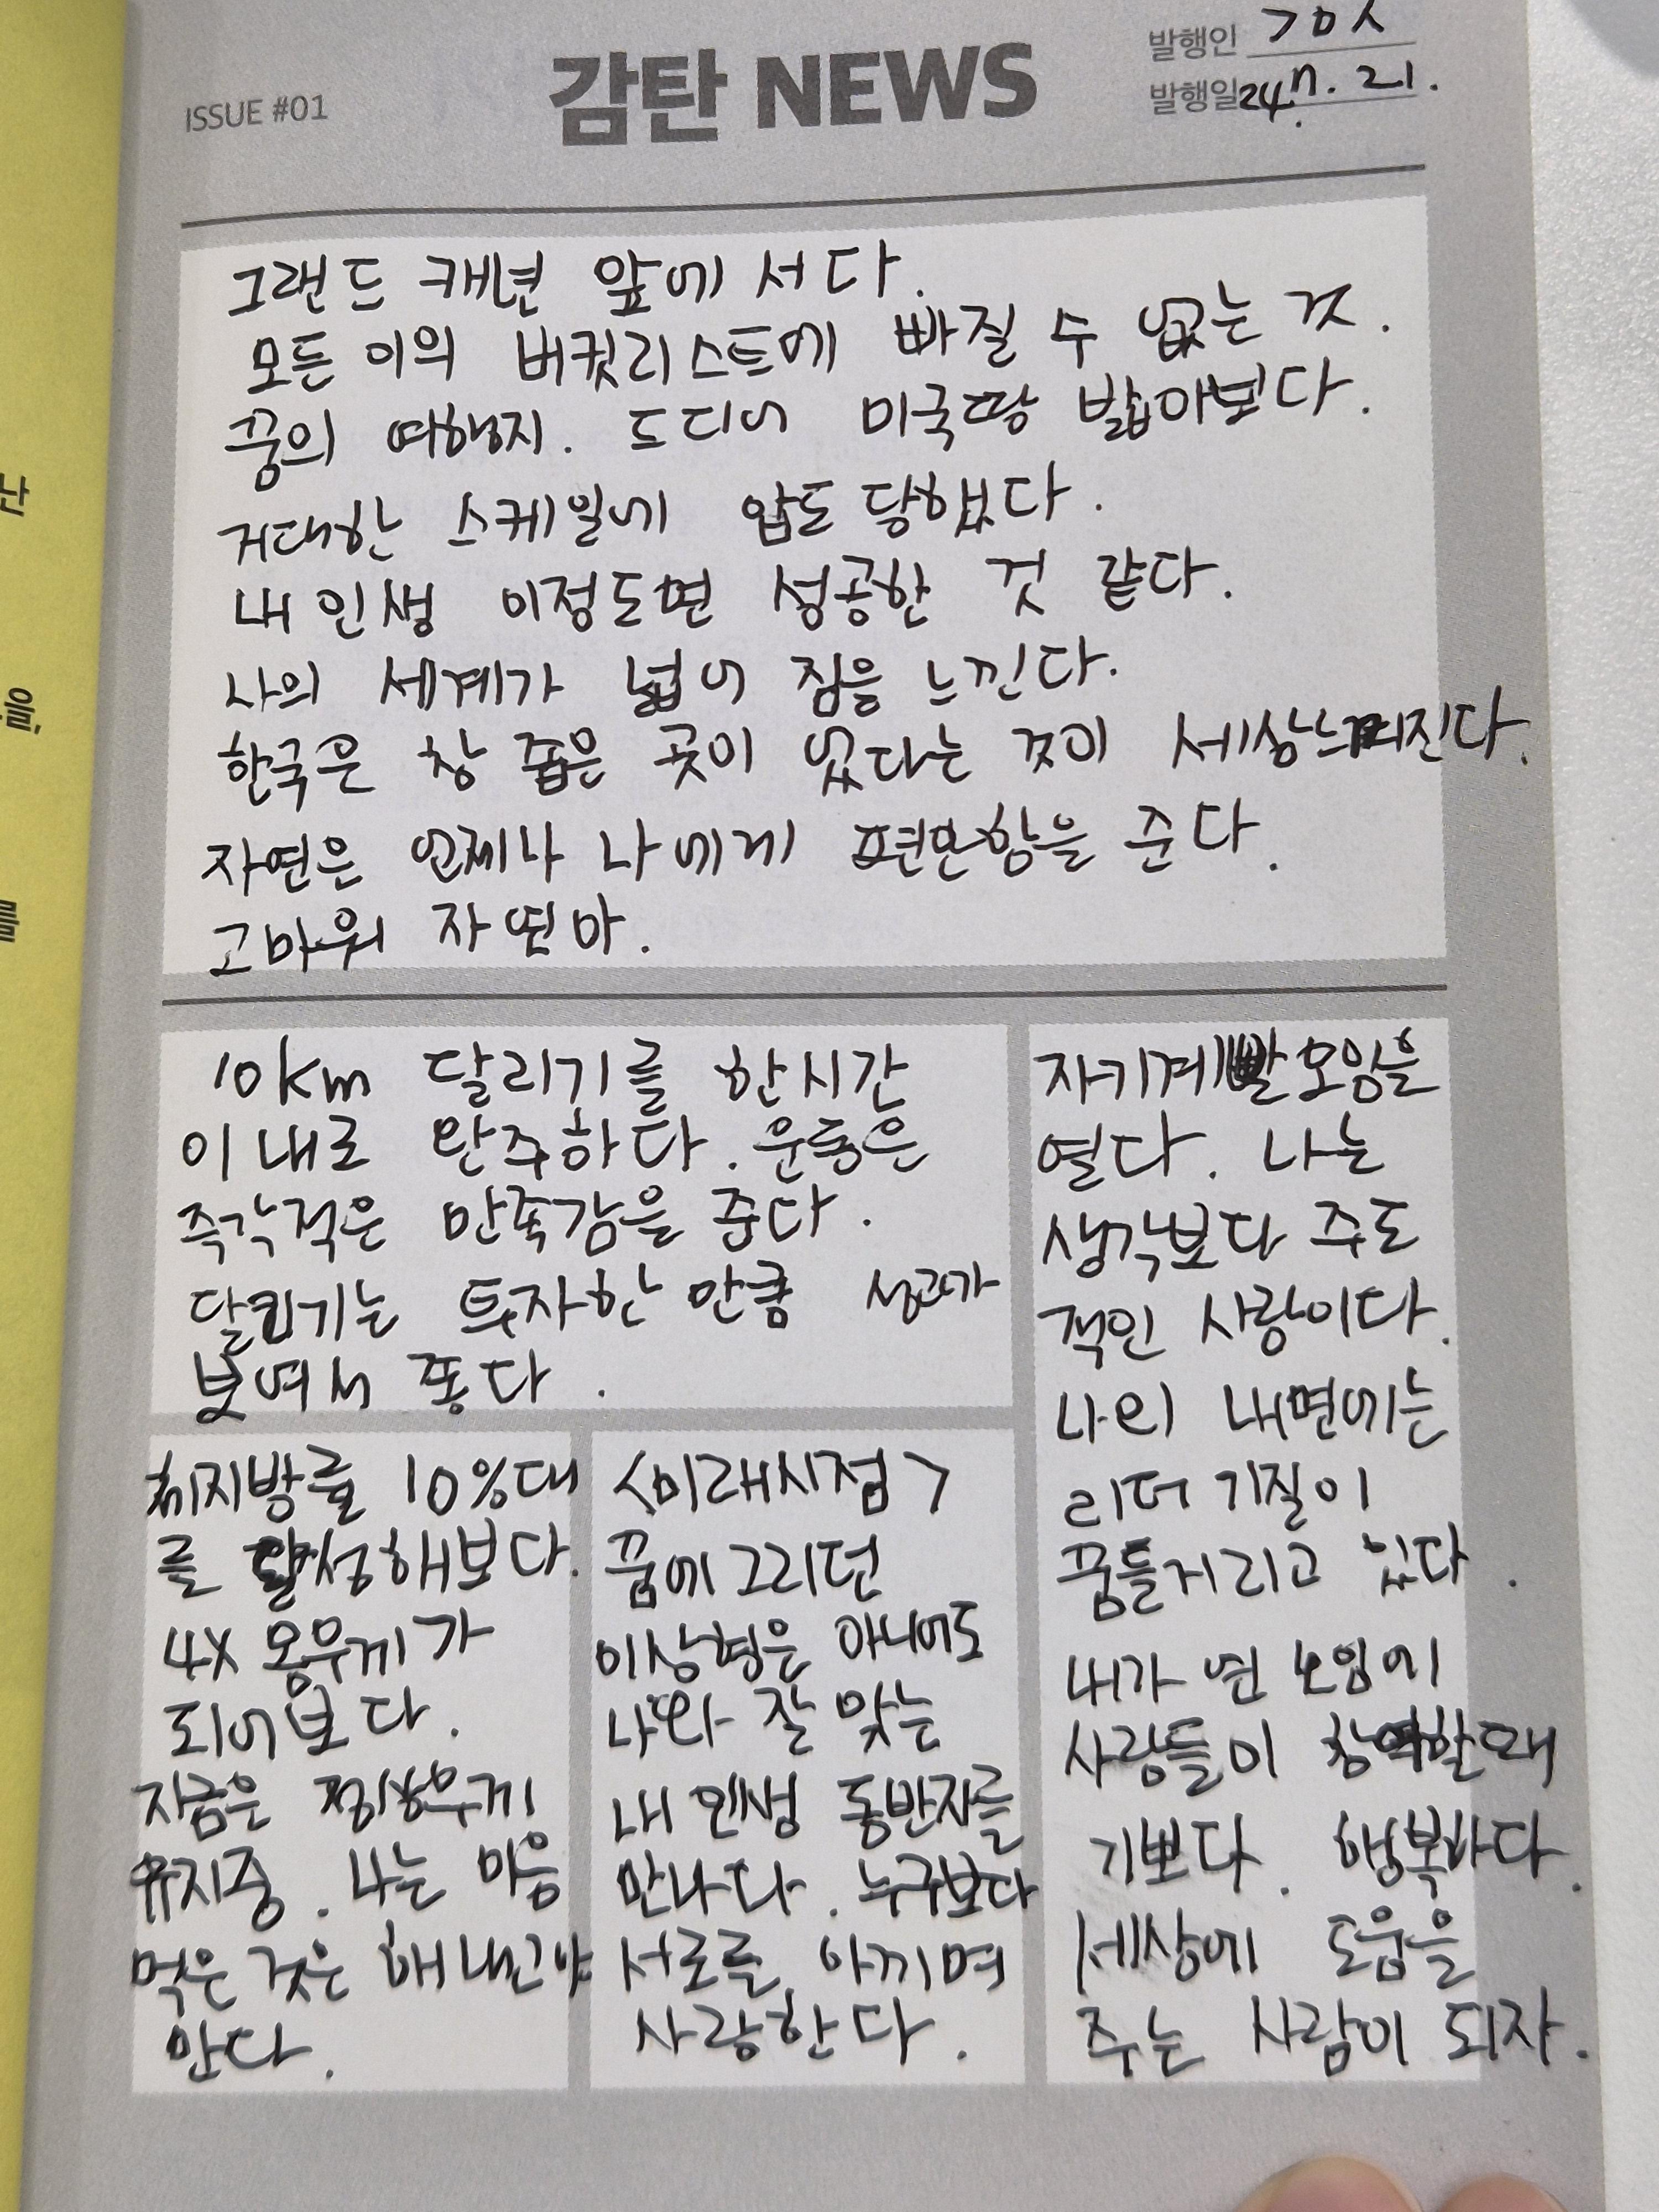 ISSUE #01
감탄 NEWS
발행인 ㄱㅁㅅ
발행일 24. 7. 21.
그랜드 캐년 앞에 서다.
모든 이의 버킷리스트에 빠질 수 없는 것.
꿈의 여행지. 드디어 미국땅 밟아보다.
거대한 스케일에 압도 당했다.
내 인생 이정도면 성공한 것 같다.
나의 세계가 넓어 짐을 느낀다.
한국은 참 좁은 곳이 였다는 것이 세삼 느껴진다.
자연은 언제나 나에게 편안함을 준다.
고마워 자연아.
10km 달리기를 한시간
이내로 완주하다. 운동은
즉각적은 만족감을 준다.
달리기는 투자한 만큼 성과가
보여서 좋다.
체지방률 10%대
를 달성해보다.
4X 몸무게가
되어보다.
지금은 몸무게
유지중. 나는 마음
먹은 것은 해내고야
만다.
<미래시점>
꿈에 그리던
이상형은 아니어도
나와 잘 맞는
내 인생 동반자를
만나다. 누구보다
서로를 아끼며
사랑한다.
자기계발 모임을
열다. 나는
생각보다 주도
적인 사람이다.
나의 내면에는
리더 기질이
꿈틀거리고 있다.
내가 연 모임에
사람들이 참여할 때
기쁘다. 행복하다.
세상에 도움을
주는 사람이 되자.
난
을,
를